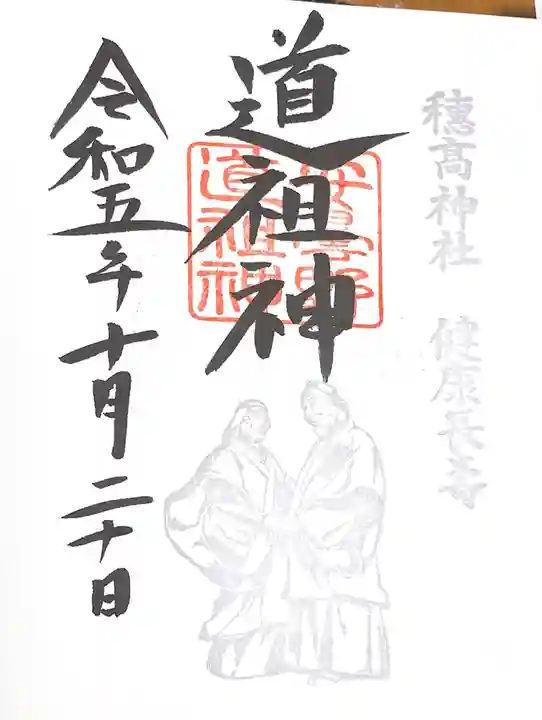 穂髙神社　健康長寿
道祖神
安曇野
道祖神
令和五年十月二十日